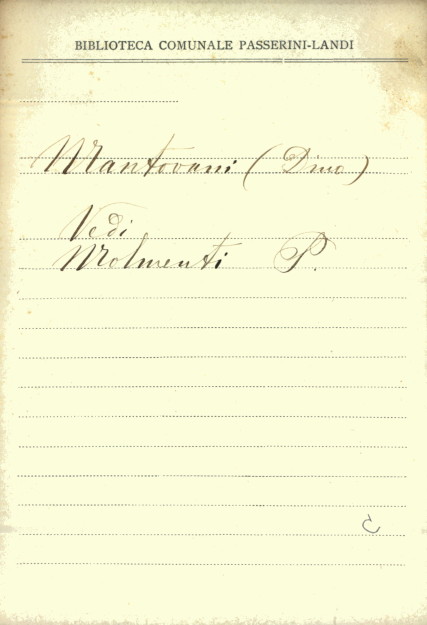 BIBLIOTECA COMUNALE PASSERINI-LANDI
Mantovani (Dino)
Vedi
Molmenti P.